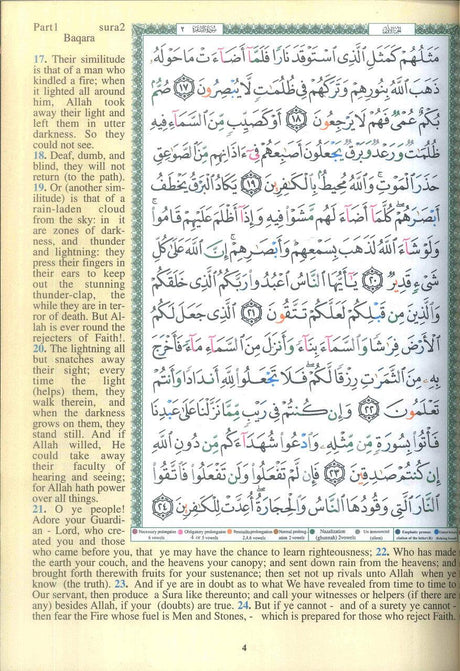 Part1 sura2
Baqara
17. Their similitude
is that of a man who
kindled a fire; when
it lighted all around
him, Allah took
away their light and
left them in utter
darkness. So they
could not see.
18. Deaf, dumb, and
blind, they will not
return (to the path).
19. Or (another sim-
ilitude) is that of a
rain-laden cloud
from the sky: in it
are zones of dark-
ness, and thunder
and lightning: they
press their fingers in
their ears to keep
out the stunning
thunder-clap, the
while they are in ter-
ror of death. But Al-
lah is ever round the
rejecters of Faith!.
20. The lightning all
but snatches away
their sight; every
time the light
(helps) them, they
walk therein, and
when the darkness
grows on them, they
stand still. And if
Allah willed, He
could take away
their faculty of
hearing and seeing;
for Allah hath power
over all things.
21. O ye people!
Adore your Guardi-
an - Lord, who cre-
ated you and those
who came before you, that ye may have the chance to learn righteousness; 22. Who has made
the earth your couch, and the heavens your canopy; and sent down rain from the heavens; and
brought forth therewith fruits for your sustenance; then set not up rivals unto Allah when ye
know (the truth). 23. And if ye are in doubt as to what We have revealed from time to time to
Our servant, then produce a Sura like thereunto; and call your witnesses or helpers (if there are
any) besides Allah, if your (doubts) are true. 24. But if ye cannot - and of a surety ye cannot -
then fear the Fire whose fuel is Men and Stones, - which is prepared for those who reject Faith.
٢
مَثَلُهُمْ كَمَثَلِ ٱلَّذِى ٱسْتَوْقَدَ نَارًا فَلَمَّآ أَضَآءَتْ مَا حَوْلَهُۥ
ذَهَبَ ٱللَّهُ بِنُورِهِمْ وَتَرَكَهُمْ فِى ظُلُمَٰتٍ لَّا يُبْصِرُونَ ﴿١٧﴾ صُمٌّۢ
بُكْمٌ عُمْىٌ فَهُمْ لَا يَرْجِعُونَ ﴿١٨﴾ أَوْ كَصَيِّبٍ مِّنَ ٱلسَّمَآءِ فِيهِ
ظُلُمَٰتٌ وَرَعْدٌ وَبَرْقٌ يَجْعَلُونَ أَصَٰبِعَهُمْ فِىٓ ءَاذَانِهِم مِّنَ ٱلصَّوَٰعِقِ
حَذَرَ ٱلْمَوْتِ ۚ وَٱللَّهُ مُحِيطٌۢ بِٱلْكَٰفِرِينَ ﴿١٩﴾ يَكَادُ ٱلْبَرْقُ يَخْطَفُ
أَبْصَٰرَهُمْ ۖ كُلَّمَآ أَضَآءَ لَهُم مَّشَوْا۟ فِيهِ وَإِذَآ أَظْلَمَ عَلَيْهِمْ قَامُوا۟ ۚ
وَلَوْ شَآءَ ٱللَّهُ لَذَهَبَ بِسَمْعِهِمْ وَأَبْصَٰرِهِمْ ۚ إِنَّ ٱللَّهَ عَلَىٰ كُلِّ
شَىْءٍ قَدِيرٌ ﴿٢٠﴾ يَٰٓأَيُّهَا ٱلنَّاسُ ٱعْبُدُوا۟ رَبَّكُمُ ٱلَّذِى خَلَقَكُمْ
وَٱلَّذِينَ مِن قَبْلِكُمْ لَعَلَّكُمْ تَتَّقُونَ ﴿٢١﴾ ٱلَّذِى جَعَلَ لَكُمُ
ٱلْأَرْضَ فِرَٰشًا وَٱلسَّمَآءَ بِنَآءً وَأَنزَلَ مِنَ ٱلسَّمَآءِ مَآءً فَأَخْرَجَ
بِهِۦ مِنَ ٱلثَّمَرَٰتِ رِزْقًا لَّكُمْ ۖ فَلَا تَجْعَلُوا۟ لِلَّهِ أَندَادًا وَأَنتُمْ
تَعْلَمُونَ ﴿٢٢﴾ وَإِن كُنتُمْ فِى رَيْبٍ مِّمَّا نَزَّلْنَا عَلَىٰ عَبْدِنَا
فَأْتُوا۟ بِسُورَةٍ مِّن مِّثْلِهِۦ وَٱدْعُوا۟ شُهَدَآءَكُم مِّن دُونِ ٱللَّهِ
إِن كُنتُمْ صَٰدِقِينَ ﴿٢٣﴾ فَإِن لَّمْ تَفْعَلُوا۟ وَلَن تَفْعَلُوا۟ فَٱتَّقُوا۟
ٱلنَّارَ ٱلَّتِى وَقُودُهَا ٱلنَّاسُ وَٱلْحِجَارَةُ ۖ أُعِدَّتْ لِلْكَٰفِرِينَ ﴿٢٤﴾
4